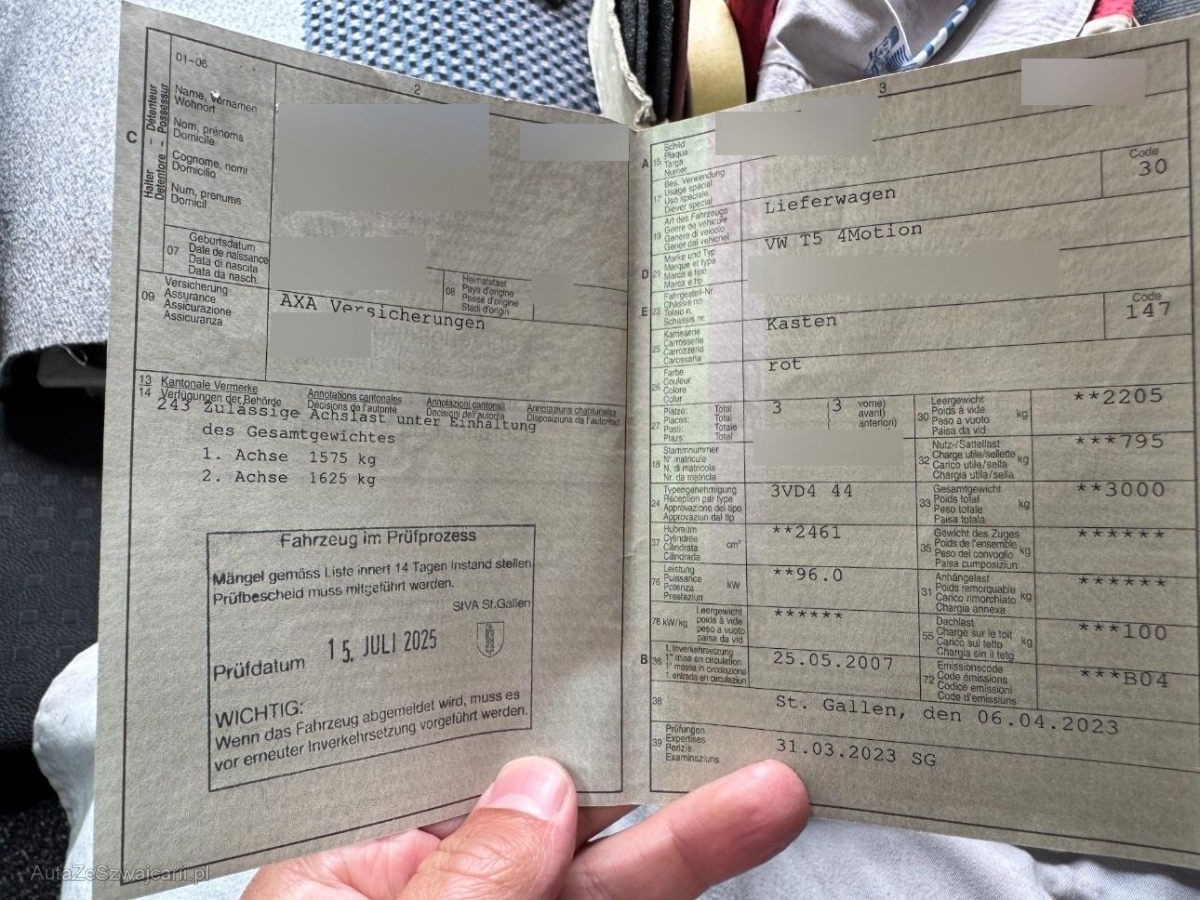 01-06
2
C
Halter – Détenteur
Detentore – Possessur
Name, Vornamen
Wohnort
Nom, prénoms
Domicile
Cognome, nomi
Domicilio
Num, prenums
Domicil
07
Geburtsdatum
Date de naissance
Data di nascita
Data da nasch.
08
Heimatstaat
Pays d'origine
Paese d'origine
Stadi d'origin
09
Versicherung
Assurance
Assicurazione
Assicuranza
AXA Versicherungen
13
14
Kantonale Vermerke
Verfügungen der Behörde
Annotations cantonales
Décisions de l'autorité
Annotazioni cantonali
Decisioni dell'autorità
Annotaziuns chantunalas
Disposiziuns da l'autoritad
243 Zulässige Achslast unter Einhaltung
des Gesamtgewichtes
1. Achse 1575 kg
2. Achse 1625 kg
Fahrzeug im Prüfprozess
Mängel gemäss Liste innert 14 Tagen instand stellen
Prüfbescheid muss mitgeführt werden.
StVA St.Gallen
Prüfdatum 15. JULI 2025
WICHTIG:
Wenn das Fahrzeug abgemeldet wird, muss es
vor erneuter Inverkehrsetzung vorgeführt werden.
3
A
15
Schild
Plaque
Targa
Numer
17
Bes. Verwendung
Usage spécial
Uso speciale
Diever spezial
19
Art des Fahrzeugs
Genre de véhicule
Genere di veicolo
Gener dal vehichel
Lieferwagen
Code
30
D
21
Marke und Typ
Marque et type
Marca e tipo
Marca e tip
VW T5 4Motion
E
23
Fahrgestell-Nr.
Châssis no
Telaio n.
Schassis nr.
25
Karosserie
Carrosserie
Carrozzeria
Carossaria
Kasten
Code
147
26
Farbe
Couleur
Colore
Colur
rot
27
Plätze: Total
Places: Total
Posti: Totale
Plazs: Total
3 (3 vorne)
avant)
anteriori)
30
Leergewicht
Poids à vide
Peso a vuoto
Paisa da vid
kg
**2205
18
Stammnummer
N° matricule
N. di matricola
Nr. da matricla
32
Nutz-/Sattellast
Charge utile/sellette
Carico utile/sella
Chargia utila/sella
kg
***795
24
Typengenehmigung
Réception par type
Approvazione del tipo
Approvaziun dal tip
3VD4 44
33
Gesamtgewicht
Poids total
Peso totale
Paisa totala
kg
**3000
37
Hubraum
Cylindrée
Cilindrata
Cilindrada
cm³
**2461
35
Gewicht des Zuges
Poids de l'ensemble
Peso del convoglio
Paisa cumposiziun
kg
******
76
Leistung
Puissance
Potenza
Prestaziun
kW
**96.0
31
Anhängelast
Poids remorquable
Carico rimorchiato
Chargia annexa
kg
******
78 kW/kg
Leergewicht
poids à vide
peso a vuoto
paisa da vid
******
55
Dachlast
Charge sur le toit
Carico sul tetto
Chargia sin il tetg
kg
***100
B
36
1. Inverkehrsetzung
1re mise en circulation
1a messa in circolazione
1. entrada en circulaziun
25.05.2007
72
Emissionscode
Code émissions
Codice emissioni
Code d'emissiuns
***B04
38
St. Gallen, den 06.04.2023
39
Prüfungen
Expertises
Perizie
Examinaziuns
31.03.2023 SG
AutaZeSzwajcarii.pl